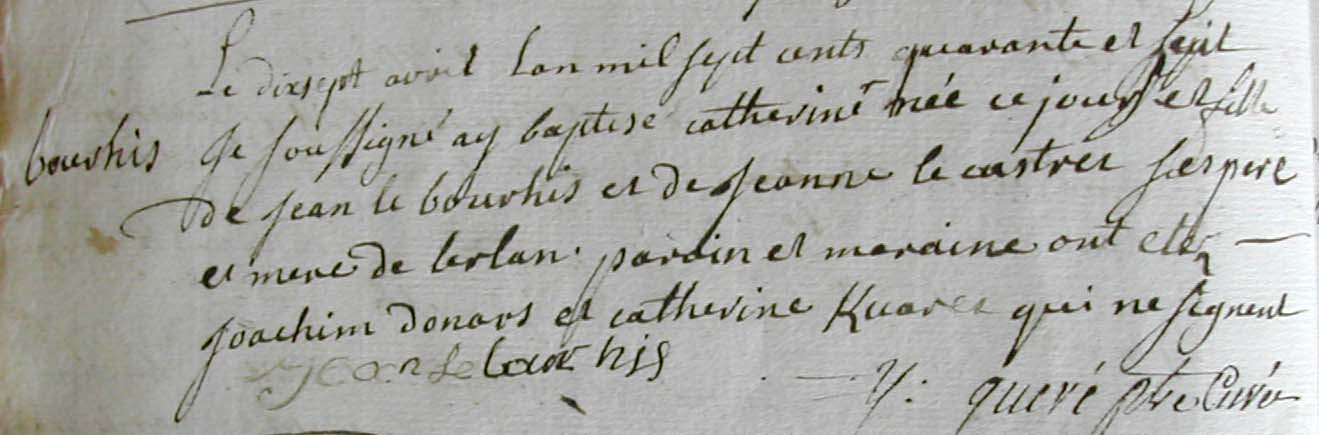 Le dixsept avril lan mil sept cents quarante et sept
bourhis Je soussigné ay baptisé catherine née ce jour et fille
de jean le bourhis et de Jeanne le castrec ses pere
et mere de lerlan. parain et maraine ont eté
joachim donars et catherine Kuarec qui ne signent
jean le bourhis
Y: queré ptre Curé